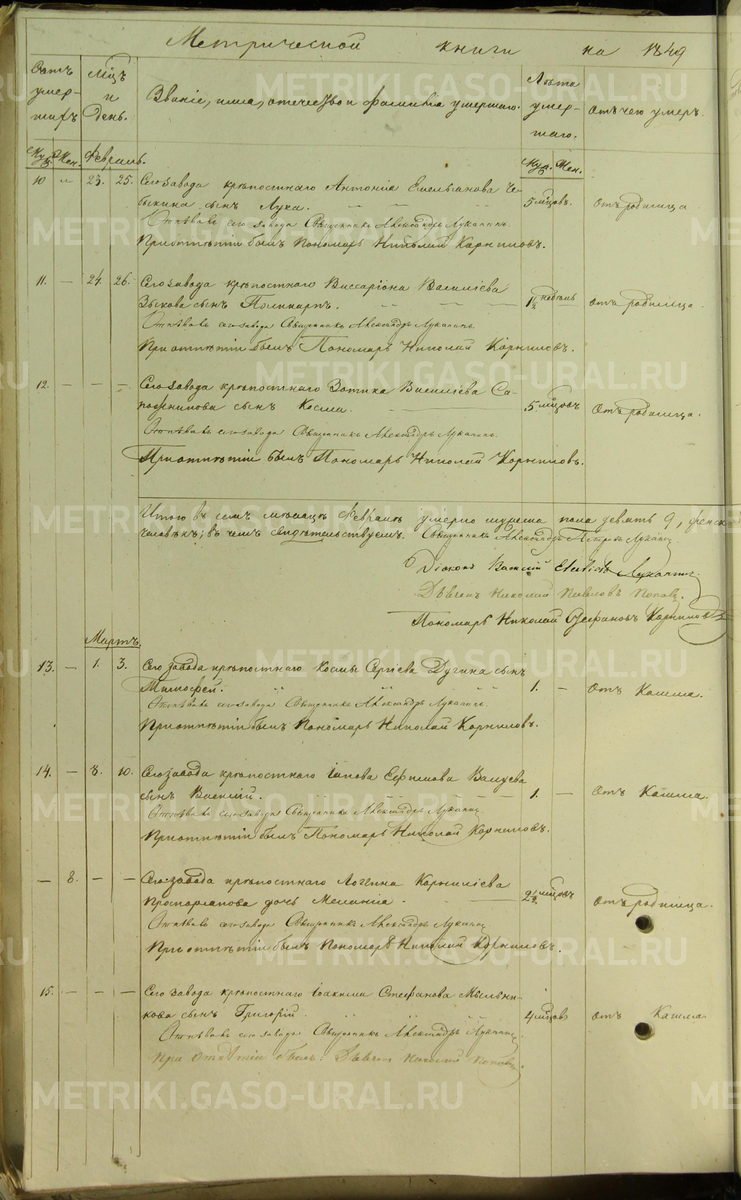 Метрической книги на 1849
Счетъ умер-шихъ.
Мцъ и день.
Званіе, имя, отечество и фамилія умершаго.
Лѣта умер-шаго.
отъ чего умеръ.
Муж. Жен. Февраль. Муж. Жен.
10 " 23. 25. Сего завода крѣпостнаго Антонія Емельянова Че-
быкина сынъ Лука. 5 мцовъ. отъ родимца
Отпѣвалъ сего завода Священникъ Александръ Лукания.
При отпѣтіи былъ Пономарь Николай Корниловъ.
11. — 24. 26. Сего завода крѣпостнаго Виссаріона Василіева
Зыкова сынъ Поликарпъ. 1½ недѣль отъ родимца
Отпѣвалъ сего завода Священникъ Александръ Лукания.
При отпѣтіи былъ Пономарь Николай Корниловъ.
12. — — — Сего завода крѣпостнаго Зотика Василіева Са-
пожникова сынъ Косма. 5 мцовъ отъ родимца.
Отпѣвалъ сего завода Священникъ Александръ Лукания.
При отпѣтіи былъ Пономарь Николай Корниловъ.
Итого въ семъ мѣсяцѣ Февралѣ умерло мужеска пола девять 9, женска
человѣкъ; въ чемъ свидѣтельствуемъ. Священникъ Александръ Петровъ
Діаконъ Василій
Дьячекъ Николай Павловъ Поповъ.
Пономарь Николай Стефановъ Корниловъ
Мартъ.
13. — 1. 3. Сего завода крѣпостнаго Космы Сергіева Дугина сынъ
Тимофей. 1. — отъ Кашля.
Отпѣвалъ сего завода Священникъ Александръ Лукания.
При отпѣтіи былъ Пономарь Николай Корниловъ.
14. — 8. 10. Сего завода крѣпостнаго Іакова Ефимова Валуева
сынъ Василій. 1. — отъ Кашля.
Отпѣвалъ сего завода Священникъ Александръ Лукания.
При отпѣтіи былъ Пономарь Николай Корниловъ.
— 8. — — Сего завода крѣпостнаго Логгина Корниліева
дочь Меланія. 2½ мцовъ отъ родимца.
Отпѣвалъ сего завода Священникъ Александръ Лукания
При отпѣтіи былъ Пономарь Николай Корниловъ.
15. — — — Сего завода крѣпостнаго Іоакима Стефанова Мыльни-
кова сынъ Григорій. 4 мцовъ отъ Кашля
Отпѣвалъ сего завода Священникъ Александръ Лукания
При отпѣтіи былъ: Дьячекъ Николай Поповъ.
METRIKI.GASO-URAL.RU